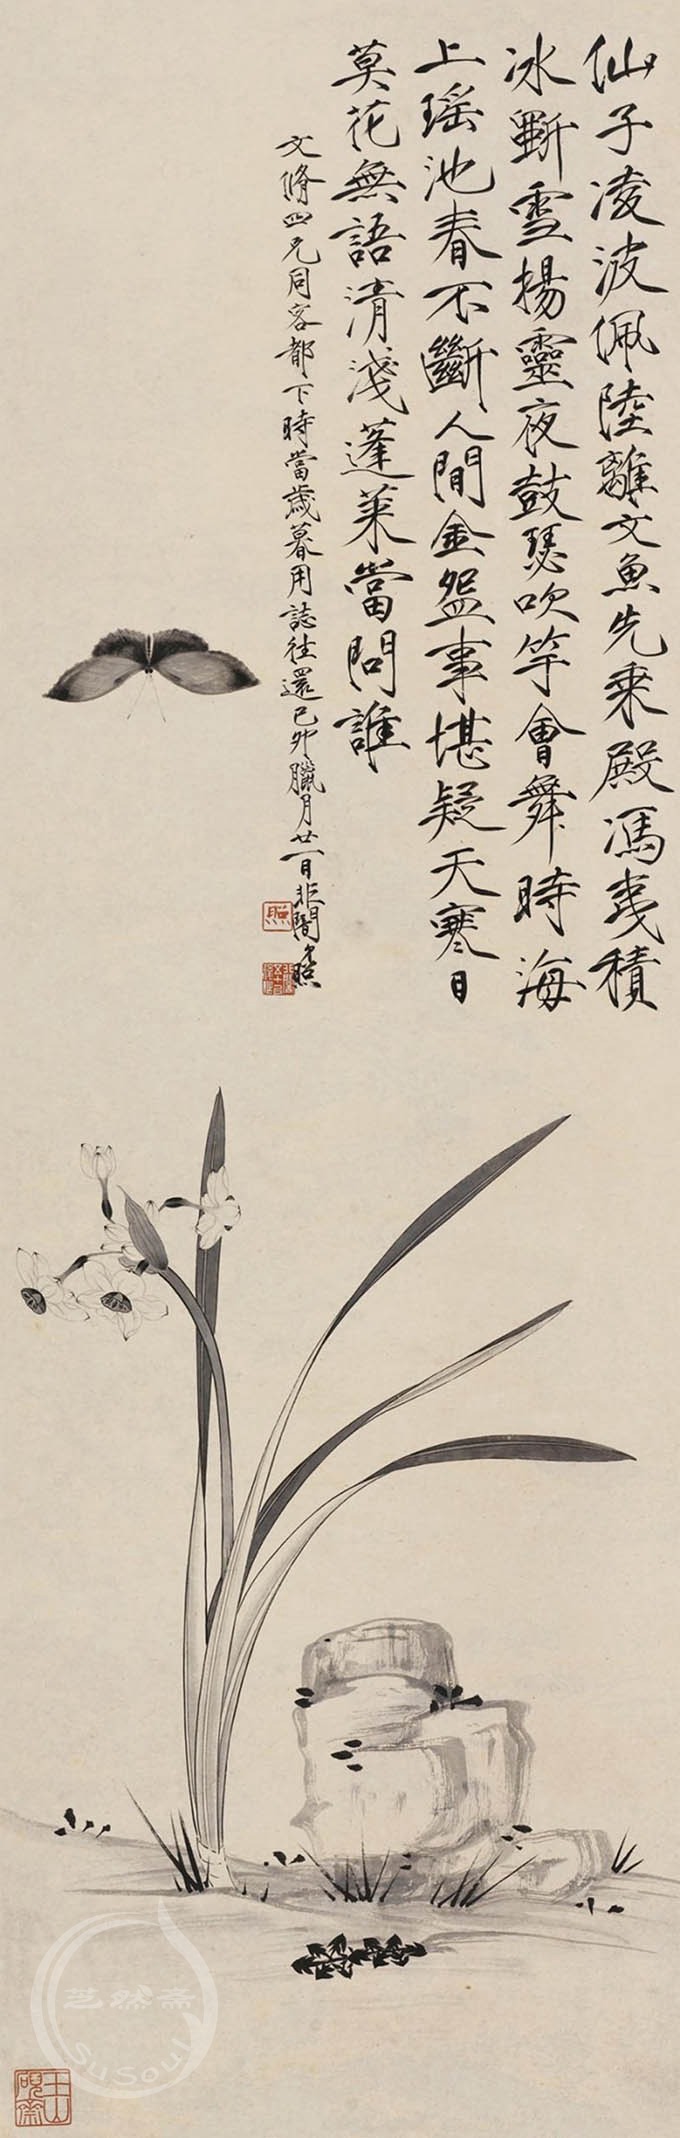 仙子凌波佩陸離文魚先乘殿馮夷積
冰斲雪揚靈夜鼓瑟吹竽會舞時海
上瑤池春不斷人間金盌事堪疑天寒日
莫花無語清淺蓬萊當問誰
文脩四兄同客都下時當歲暮用誌往還己卯臘月廿一日非闇照
照
玉山硯齋
芝然斋
SuSoul